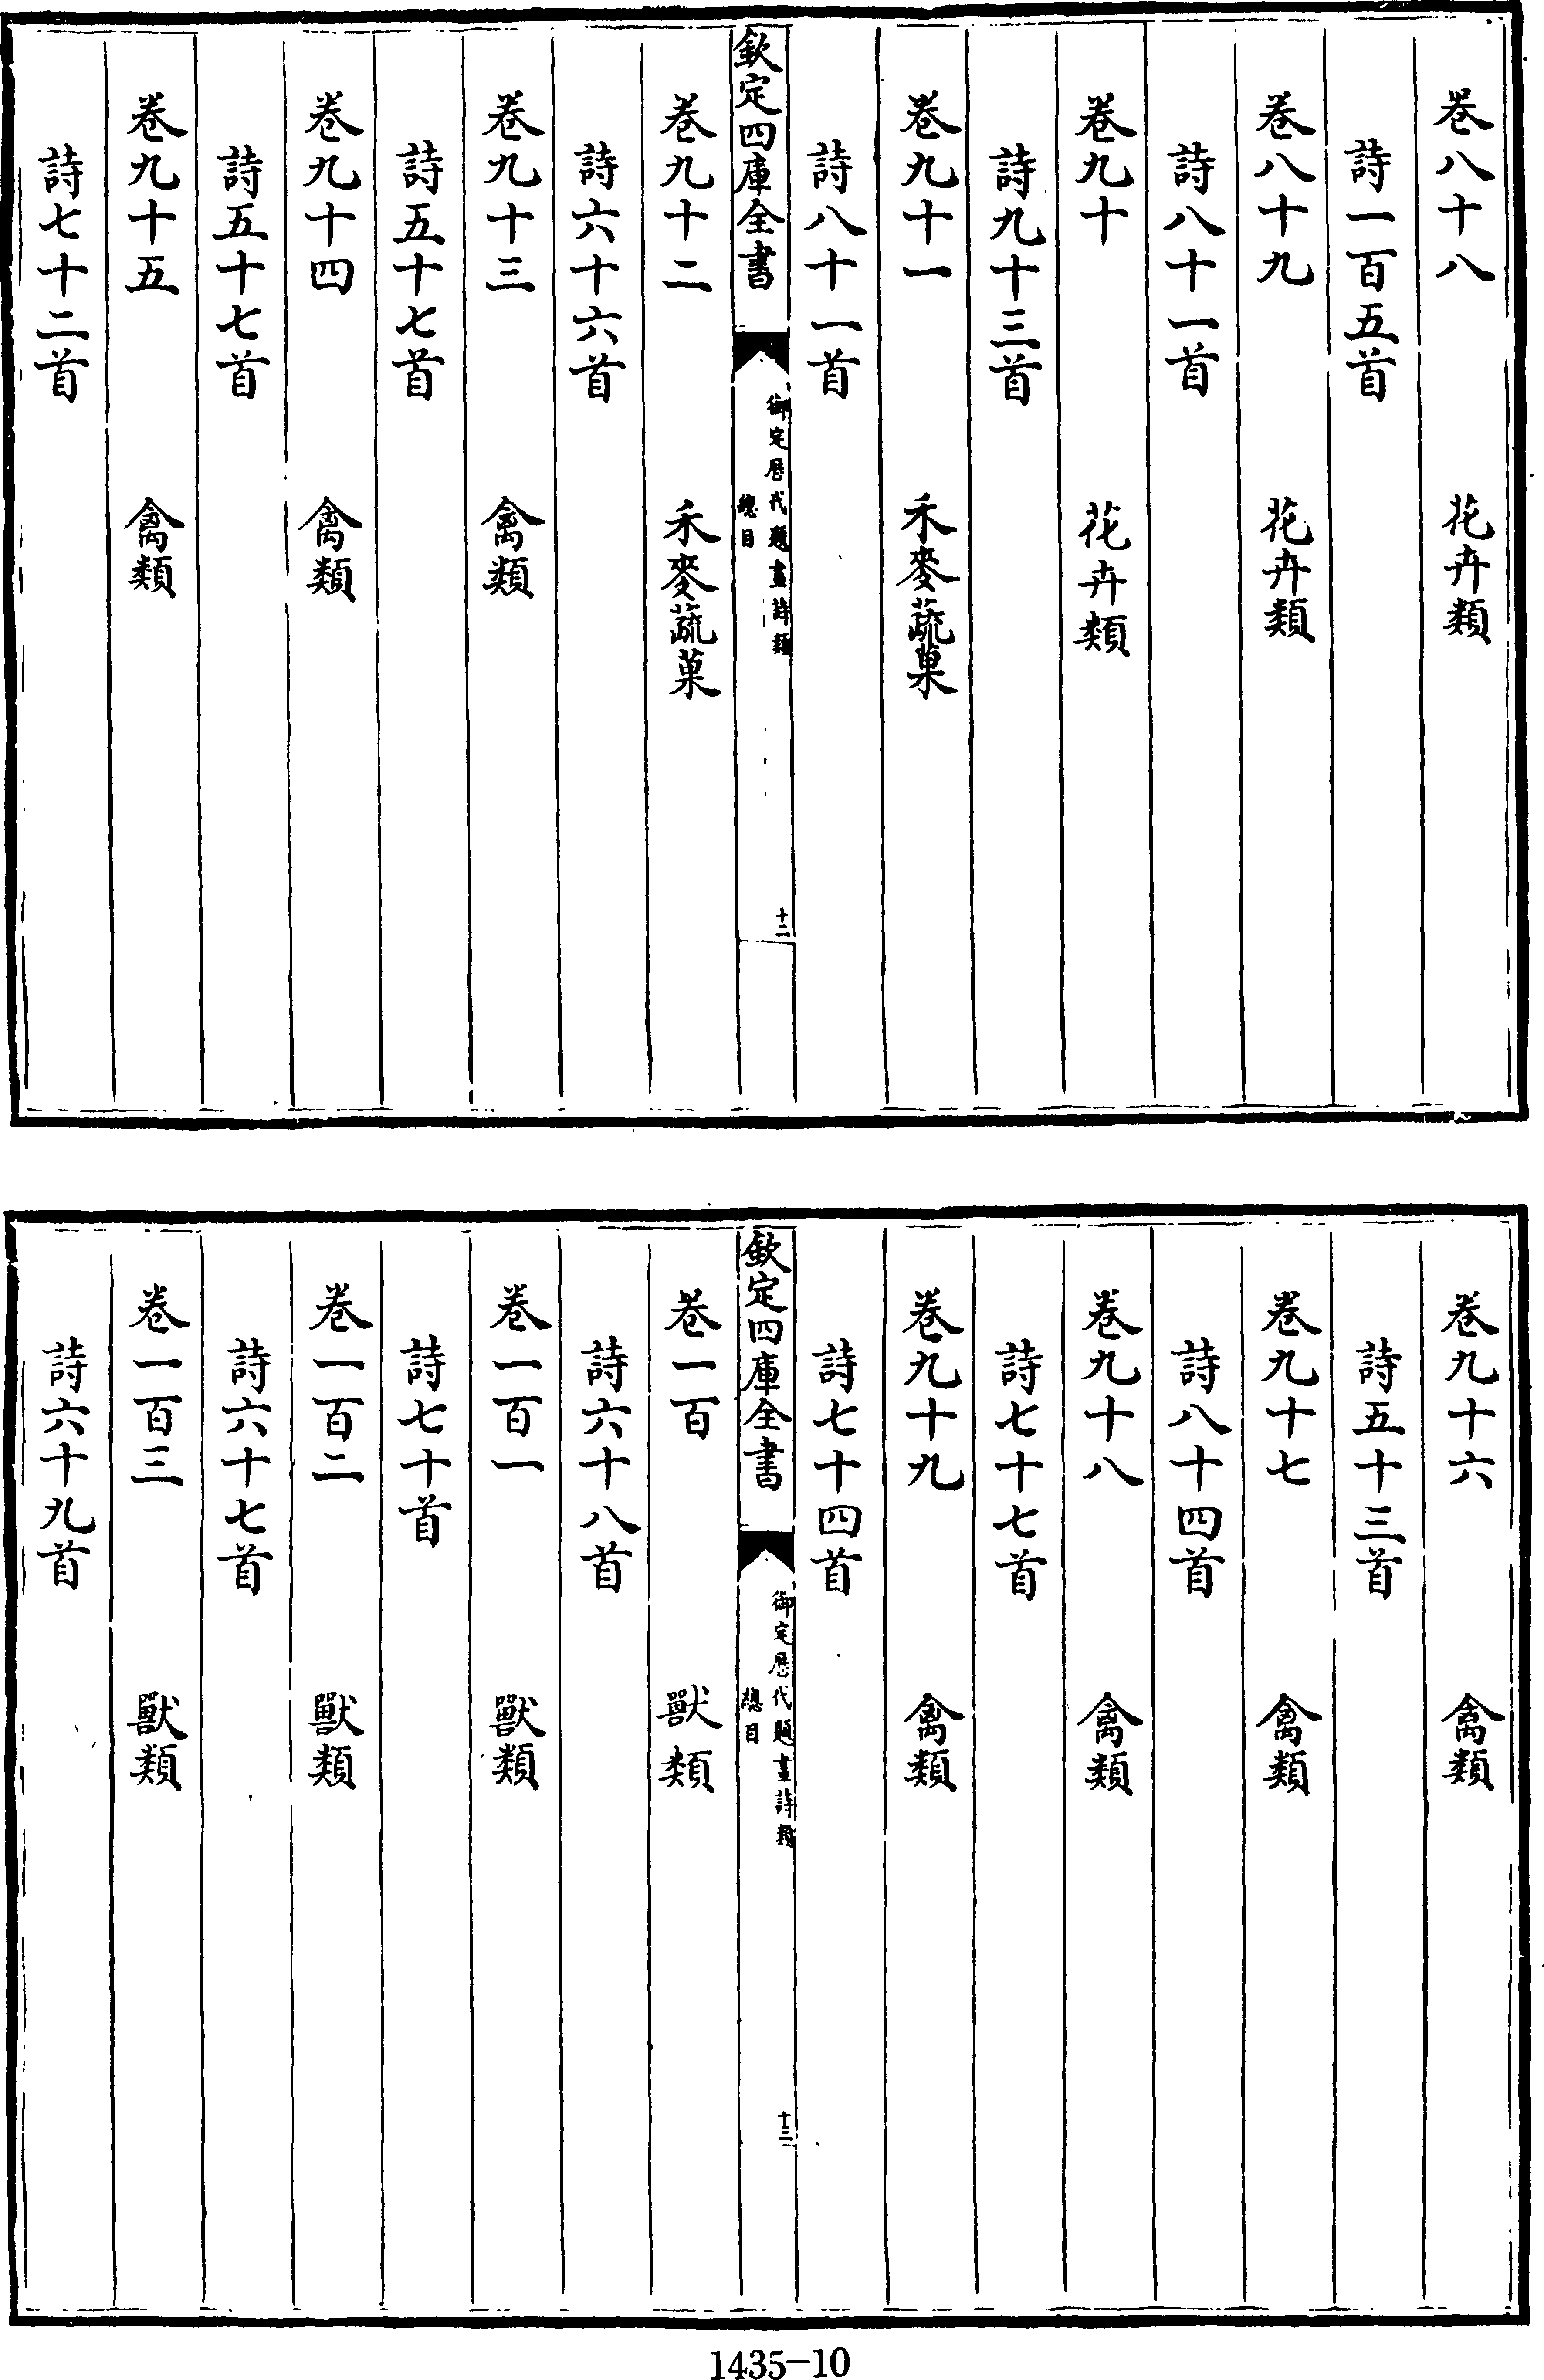 卷八十八　花卉類
詩一百五首
卷八十九　花卉類
詩八十一首
卷九十　花卉類
詩九十三首
卷九十一　禾麥蔬菓
詩八十一首
欽定四庫全書
御定歷代題畫詩類
總目
十二
卷九十二　禾麥蔬菓
詩六十六首
卷九十三　禽類
詩五十七首
卷九十四　禽類
詩五十七首
卷九十五　禽類
詩七十二首
卷九十六　禽類
詩五十三首
卷九十七　禽類
詩八十四首
卷九十八　禽類
詩七十七首
卷九十九　禽類
詩七十四首
欽定四庫全書
御定歷代題畫詩類
總目
十三
卷一百　獸類
詩六十八首
卷一百一　獸類
詩七十首
卷一百二　獸類
詩六十七首
卷一百三　獸類
詩六十九首
1435-10